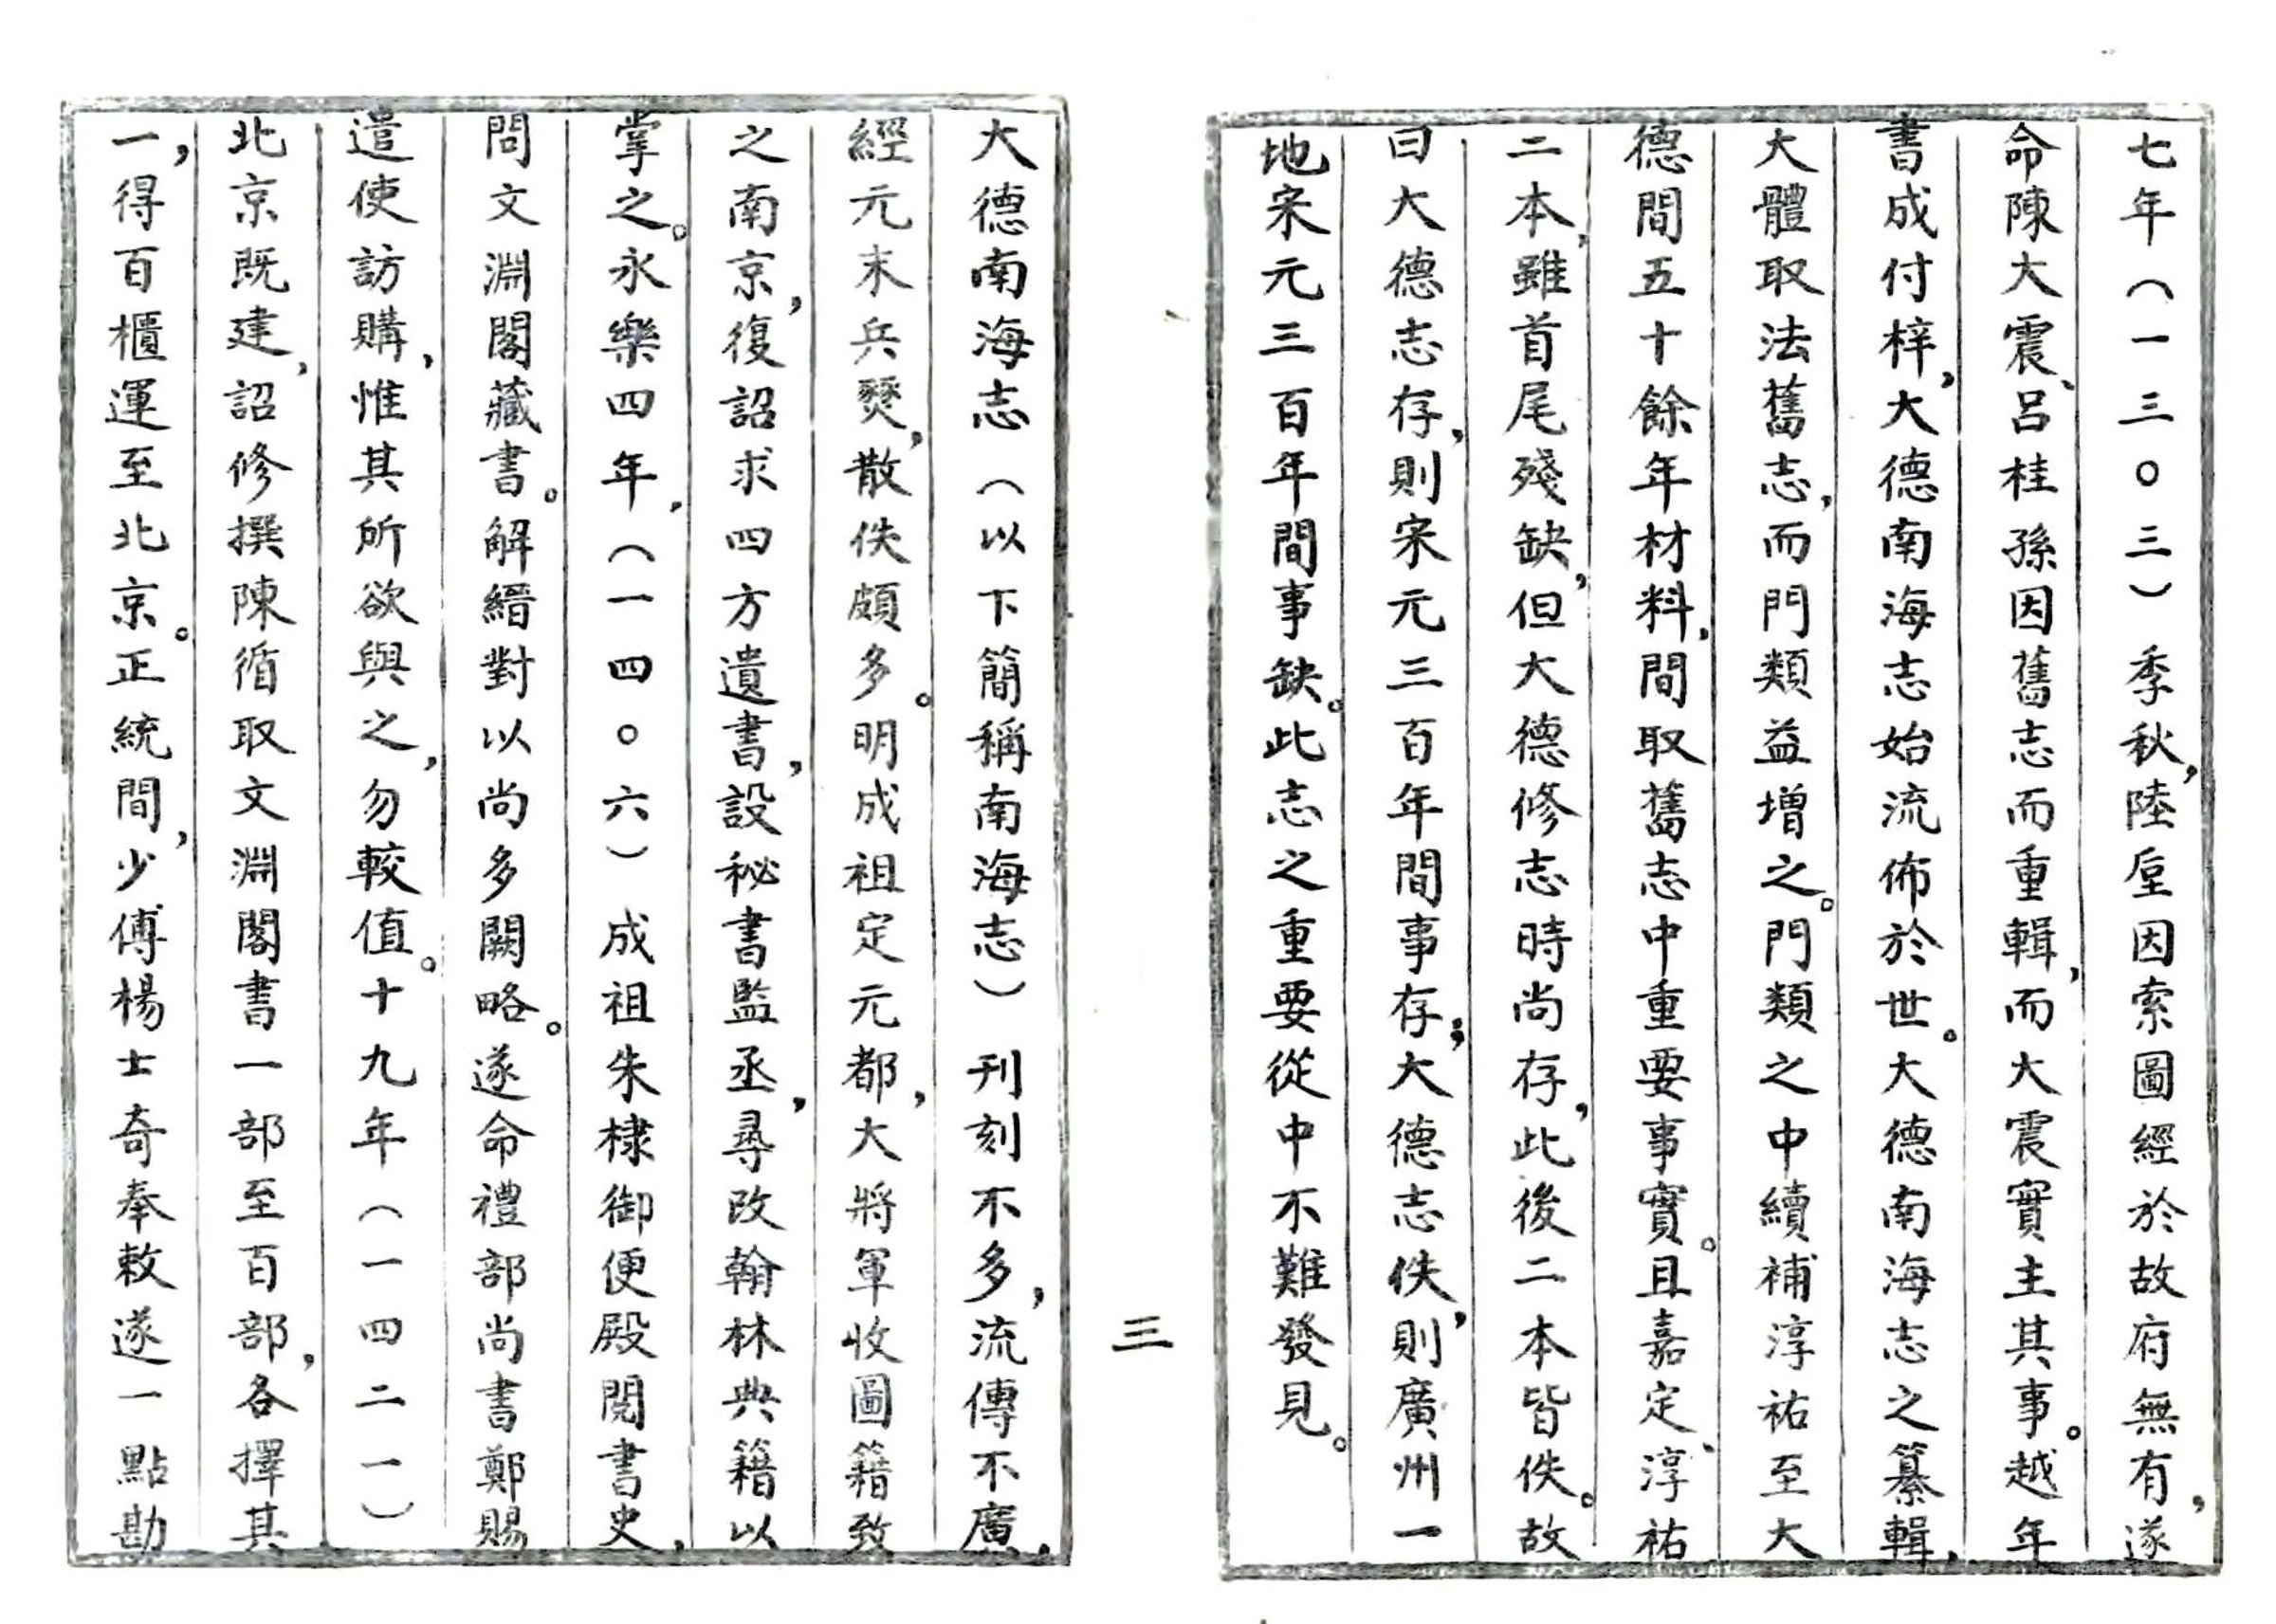 七年（一三〇三）季秋，陸垕因索圖經於故府無有，遂
命陳大震、呂桂孫因舊志而重輯，而大震實主其事。越年
書成付梓，大德南海志始流佈於世。大德南海志之纂輯，
大體取法舊志，而門類益增之。門類之中續補淳祐至大
德間五十餘年材料，間取舊志中重要事實。且嘉定、淳祐
二本，雖首尾殘缺，但大德修志時尚存，此後二本皆佚。故
曰大德志存，則宋元三百年間事存；大德志佚，則廣州一
地宋元三百年間事缺。此志之重要從中不難發見。
三
大德南海志（以下簡稱南海志）刊刻不多，流傳不廣，
經元末兵燹，散佚頗多。明成祖定元都，大將軍收圖籍致
之南京，復詔求四方遺書，設秘書監丞，尋改翰林典籍以
掌之。永樂四年，（一四〇六）成祖朱棣御便殿閱書史，
問文淵閣藏書。解縉對以尚多闕略。遂命禮部尚書鄭賜
遣使訪購，惟其所欲與之，勿較值。十九年（一四二一）
北京既建，詔修撰陳循取文淵閣書一部至百部，各擇其
一，得百櫃運至北京。正統間，少傅楊士奇奉敕遂一點勘